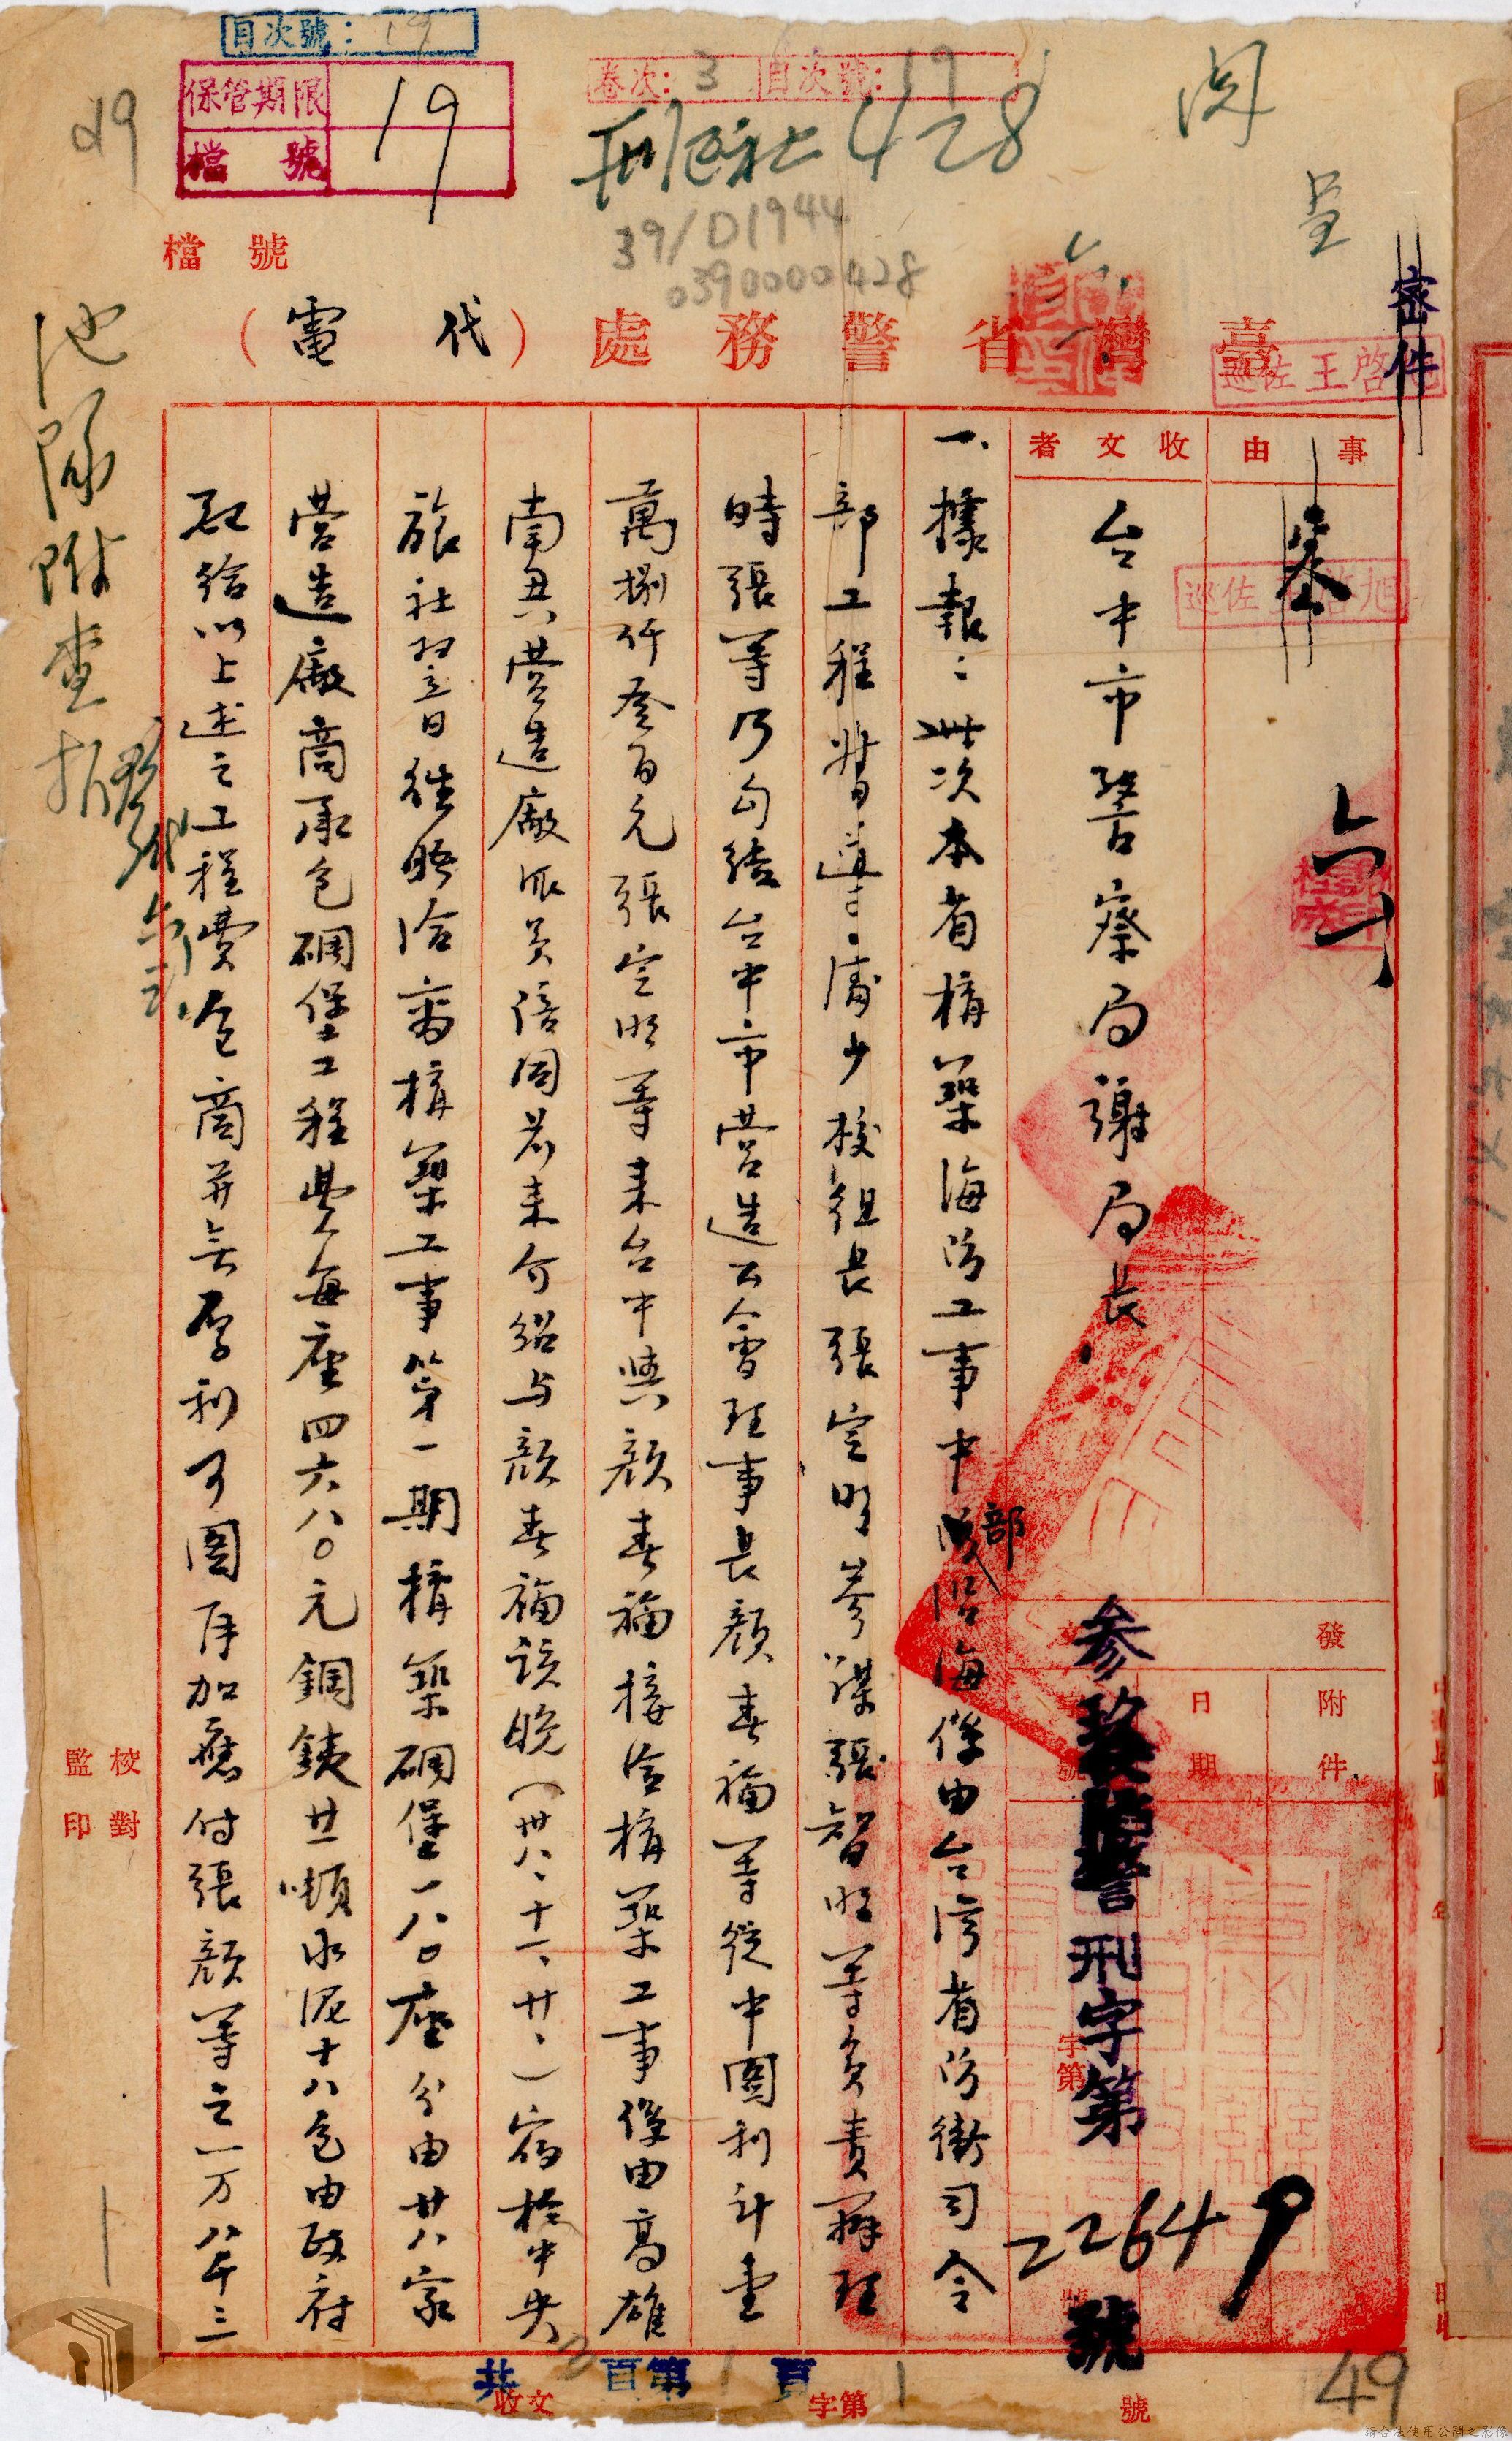 目次號：19
保管期限
檔號
19
卷次：3 目次號：19
428
39/D1944
0390000428
檔號
49
閱
密件
臺灣省警務處（代電）
巡佐王啓旭
事由
收文者
台中市警察局謝局長
巡佐王啓旭
發文
附件
日期
字號
字第
參玖陸警刑字第22649號
一、據報：此次本省構築海防工事中部沿海係由台灣省防衛司令
部工程督導、少校組長張定明參謀張智明等負責辦理
時張等乃勾結台中市營造公會理事長顏春福等從中圖利計壹
萬捌仟叁百元張定明等來台中與顏春福接洽構築工事係由高雄
南興營造廠派員倍同前來介紹与顏春福該晚（卅八、十一、廿、）宿於中央
旅社翌日繼晤洽商構築工事第一期構築碉堡一八〇座分由廿八家
營造廠商承包碉堡工程費每座四六八〇元鋼鉄廿噸水泥十八包由政府
配給以上述之工程費包商并無厚利可圖再加應付張顏等之一万八千三
池隊附查報
校對
監印
共3頁第1頁
收文
字第
號
49
請合法使用公開之影像